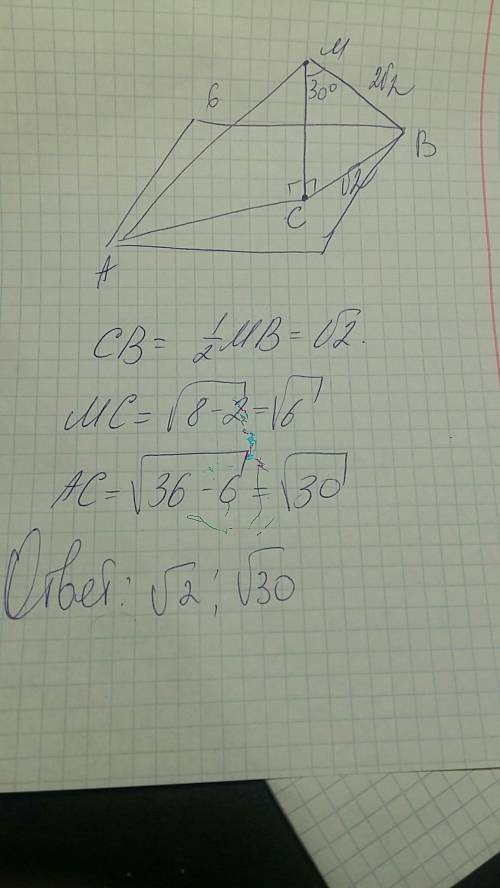 M
6
30°
2√2
B
√2
C
A
CB = 1/2 MB = √2.
MC = √8-2 = √6
AC = √36-6 = √30
Ответ: √2; √30